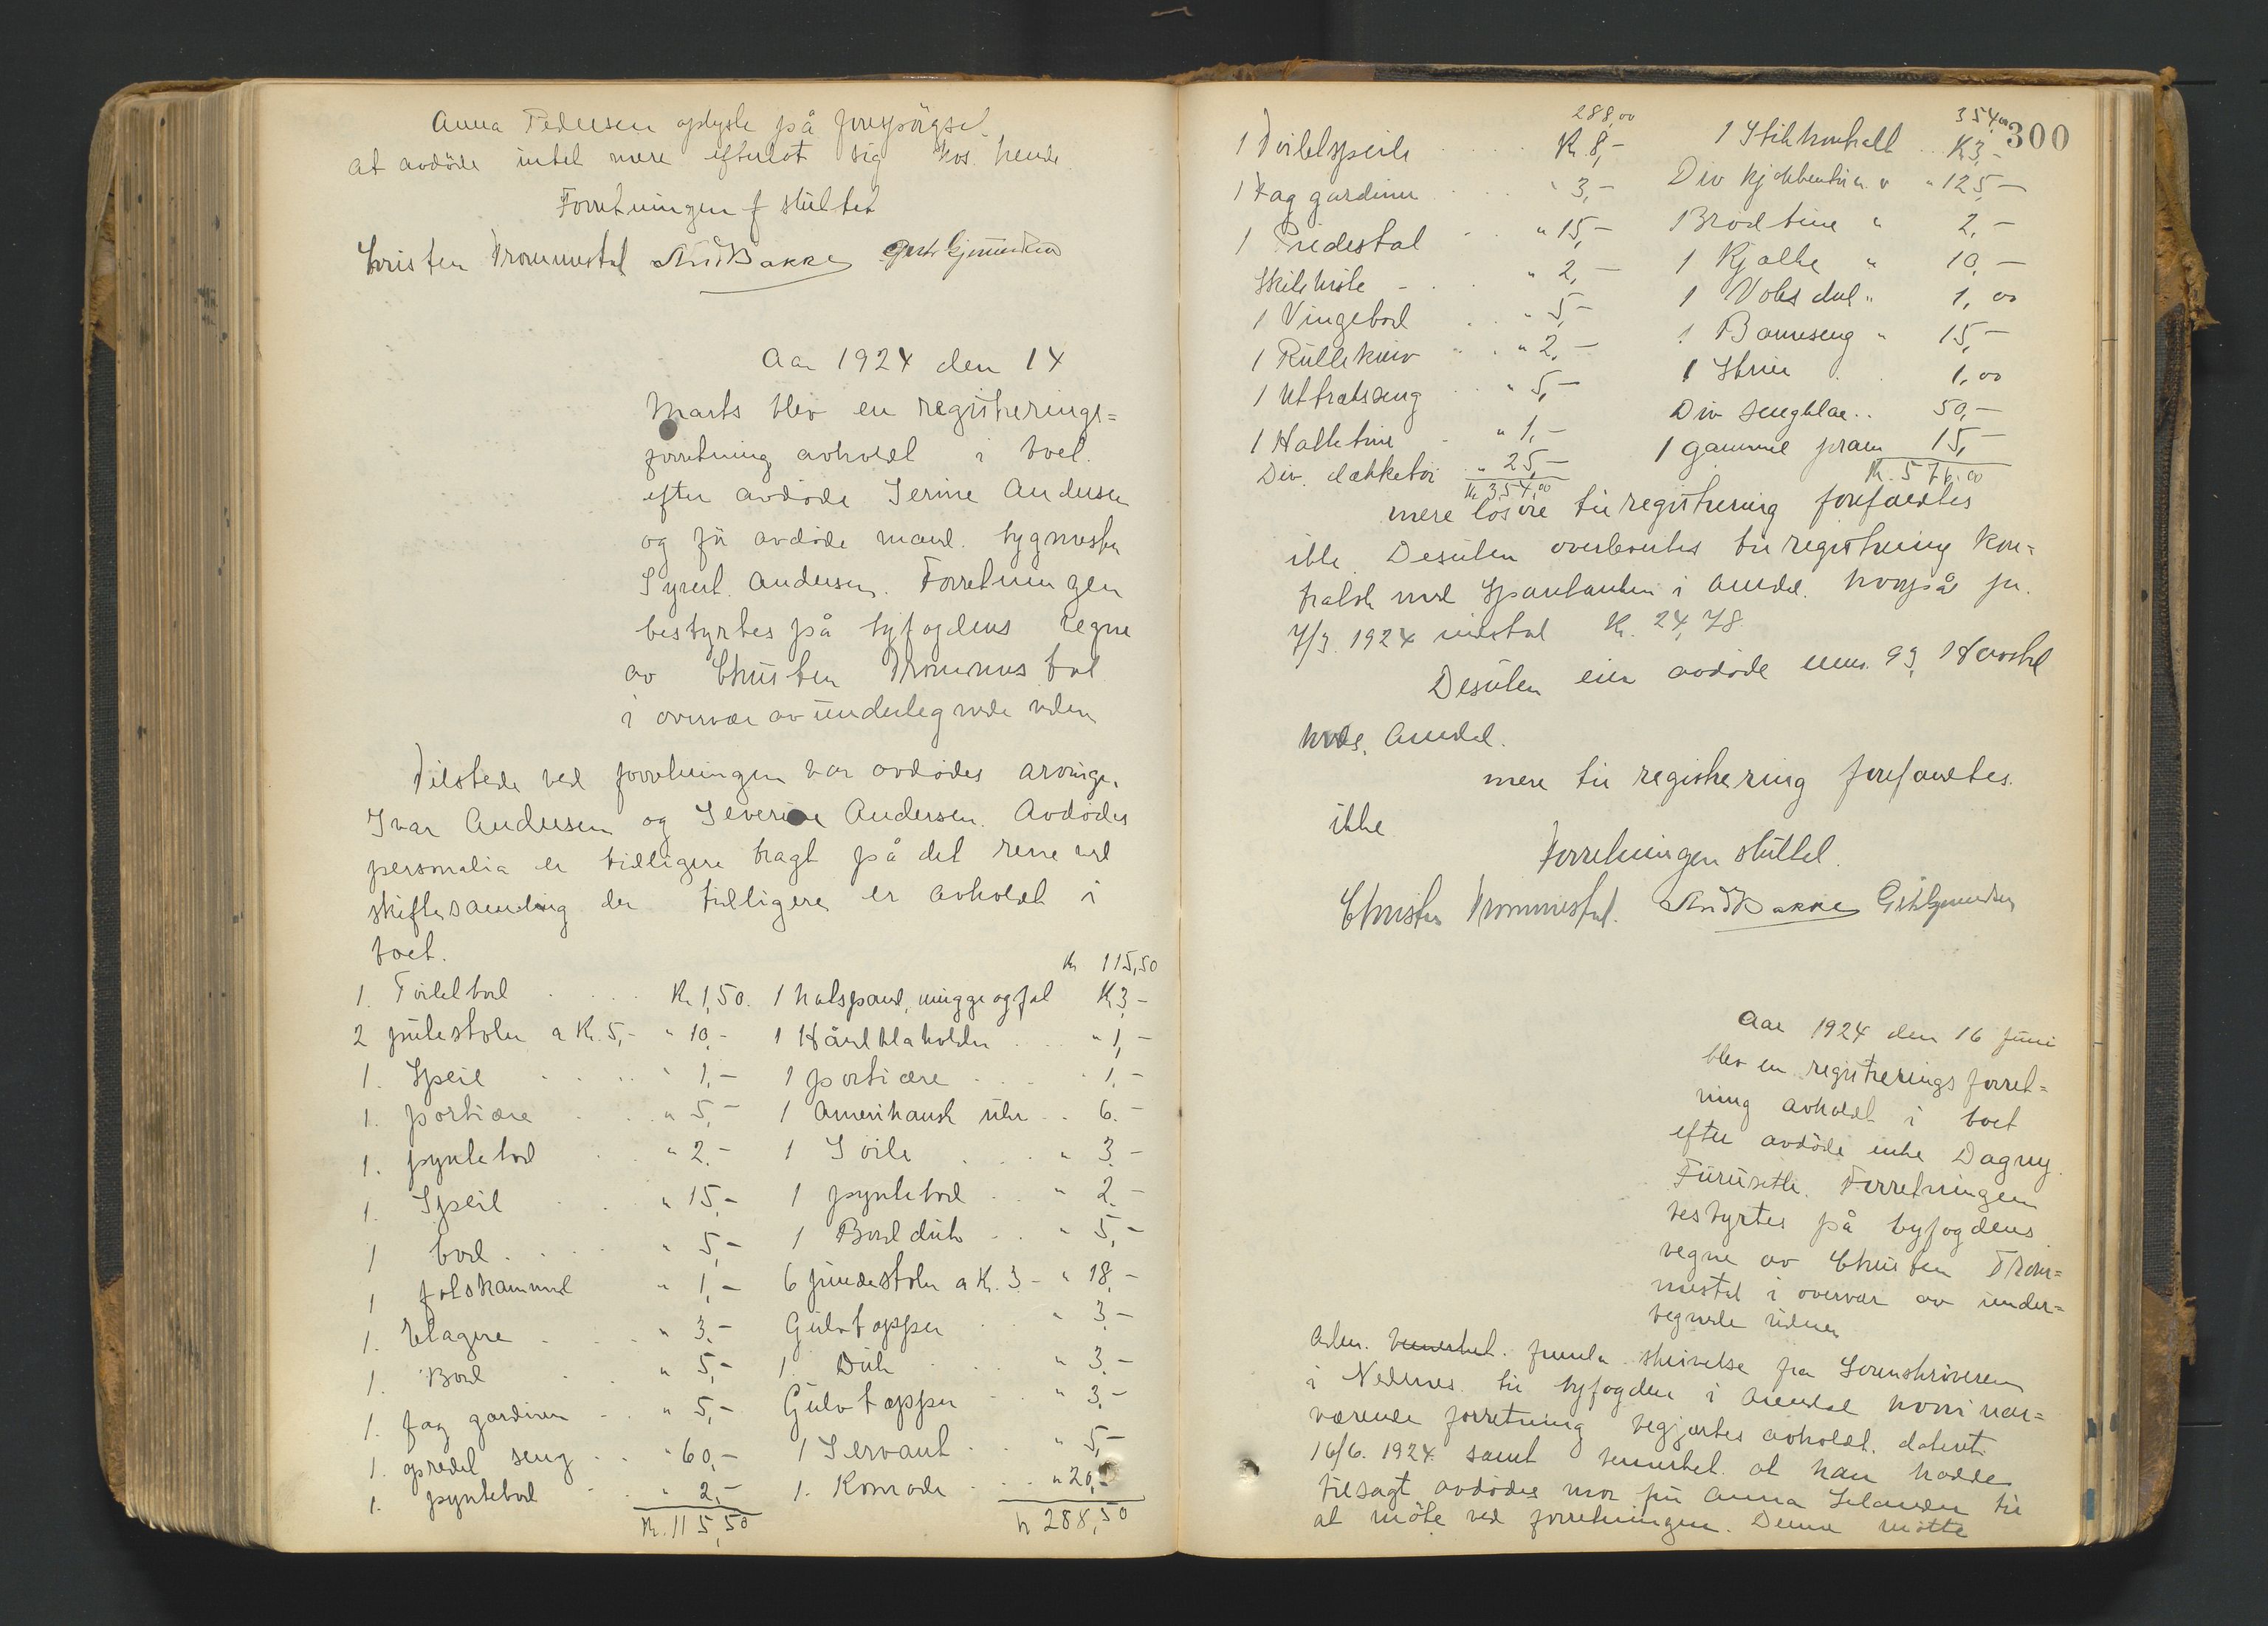 Anna Pedersen oplyste på forespörgsel
at avdöde intet mere efterlot sig hos hende
Forretningen sluttet
Christen Trommestad And Bakke
Aar 1924 den 14
Marts blev en registrerings=
forretning avholdt i boet
efter avdöde Serine Andersen
og för avdöde mand bygmester
Syvert Andersen. Forretningen
bestyrtes på byfogdens vegne
av Christen Trommestad
i overvær av undertegnede vidner
Tilstede ved forretningen var avdödes arvinger
Ivar Andersen og Severine Andersen. Avdödes
personalia er tidligere bragt på det rene ved
skiftesamling der tidligere er avholdt i
boet.
Kr 115,50
1. Toiletbord Kr 1,50. 1 halspand, mugge og fat Kr 3,-
2 putestoler a Kr. 5,- " 10,- 1 Håndklæholder " 1,-
1. Speil " 1,- 1 portiære 1,-
1. portiære " 5,- 1 Amerikansk uhr 6.-
1. pyntebord " 2.- 1 Söile " 3.-
1. Speil " 15,- 1 pyntebord " 2.-
1 bord " 5,- 1 Bordduk " 5,-
1 fotskammel " 1,- 6 pindestoler a Kr. 3 - " 18,-
1. Etagere " 3.- Gulvtæpper " 3.-
1. Bord " 5,- 1. Duk " 3.-
1. fag gardiner " 5,- Gulvtæpper " 3.-
1. opredt seng " 60,- 1 Servant " 5,-
1. pyntebord " 2,- 1. Komode " 20,-
Kr. 115,50 Kr 288,50
300
288,00 354,00
1 Toiletspeile Kr. 8,- 1 Kr 3,-
1 Fag gardiner " 3,- Div kjökkentöi " 125,-
1 Piedestal " 15,- Brödtine " 2,-
" 2,- 1 Kjælke " 10,-
1 Vingebord " 5,- 1 " 1,00
1 Rullekniv " 2,- 1 Barneseng " 15,-
1 Uttræksseng " 5,- 1 Skrin 1,00
1 Hattetine " 1,- Div sengklær 50,-
Div. dækketöi " 25,- 1 gammel pram 15,-
Kr 354,00 Kr. 576.00
mere lösöre til registrering forefandtes
ikke. Desuten overleveredes til registrering kon=
trabok med Sparbanken i Arendal hvorpå pr.
7/3. 1924 indestod Kr. 24,78
Desuten eier avdöde eiend. 93 Havstad
hvds. Arendal.
mere til registrering forefandtes.
ikke
Forretningen sluttet.
Christen Trommestad. And Bakke
Aar 1924 den 16 juni
blev en registreringsforret=
ning avholdt i boet
efter avdöde enke Dagny
Furuseth. Forretningen
bestyrtes på byfogdens
vegne av Christen Trom=
mestad i overvær av under=
tegnede vidner
Adm. bemerket fremla skrivelse fra Sorenskriveren
i Nedenes til byfogden i Arendal hvori nær=
værende forretning begjærtes avholdt. datert.
16/6. 1924 samt bemerket at han hadde
tilsagt avdödes mor fru Anna til
at möte ved forretningen. Denne mötte